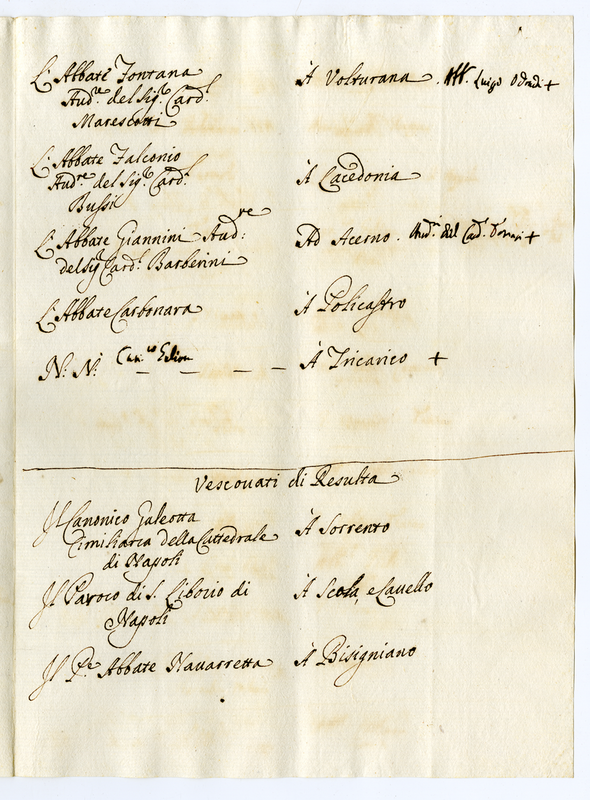 L'Abbate Fontana
Aud.re del Sig.r Card.l
Marescotti
À Volturara . Luigi +
L'Abbate Falconio
Aud.re del Sig.r Card.l
Bussi
À Lacedonia
L'Abbate Giannini Aud.re
del Sig.r Card.l Barberini
Ad Acerno . Aud.r del Card.l +
L'Abbate Carbonara
À Policastro
N: N:
À Tricarico +
Vescouati di Resulta
Il Canonico Galeotta
Cimiliarca della Cattedrale
di Napoli
À Sorrento
Il Paroco di S. Liborio di
Napoli
À Scala, e Rauello
Il P.e Abbate Nauarretta
À Bisigniano